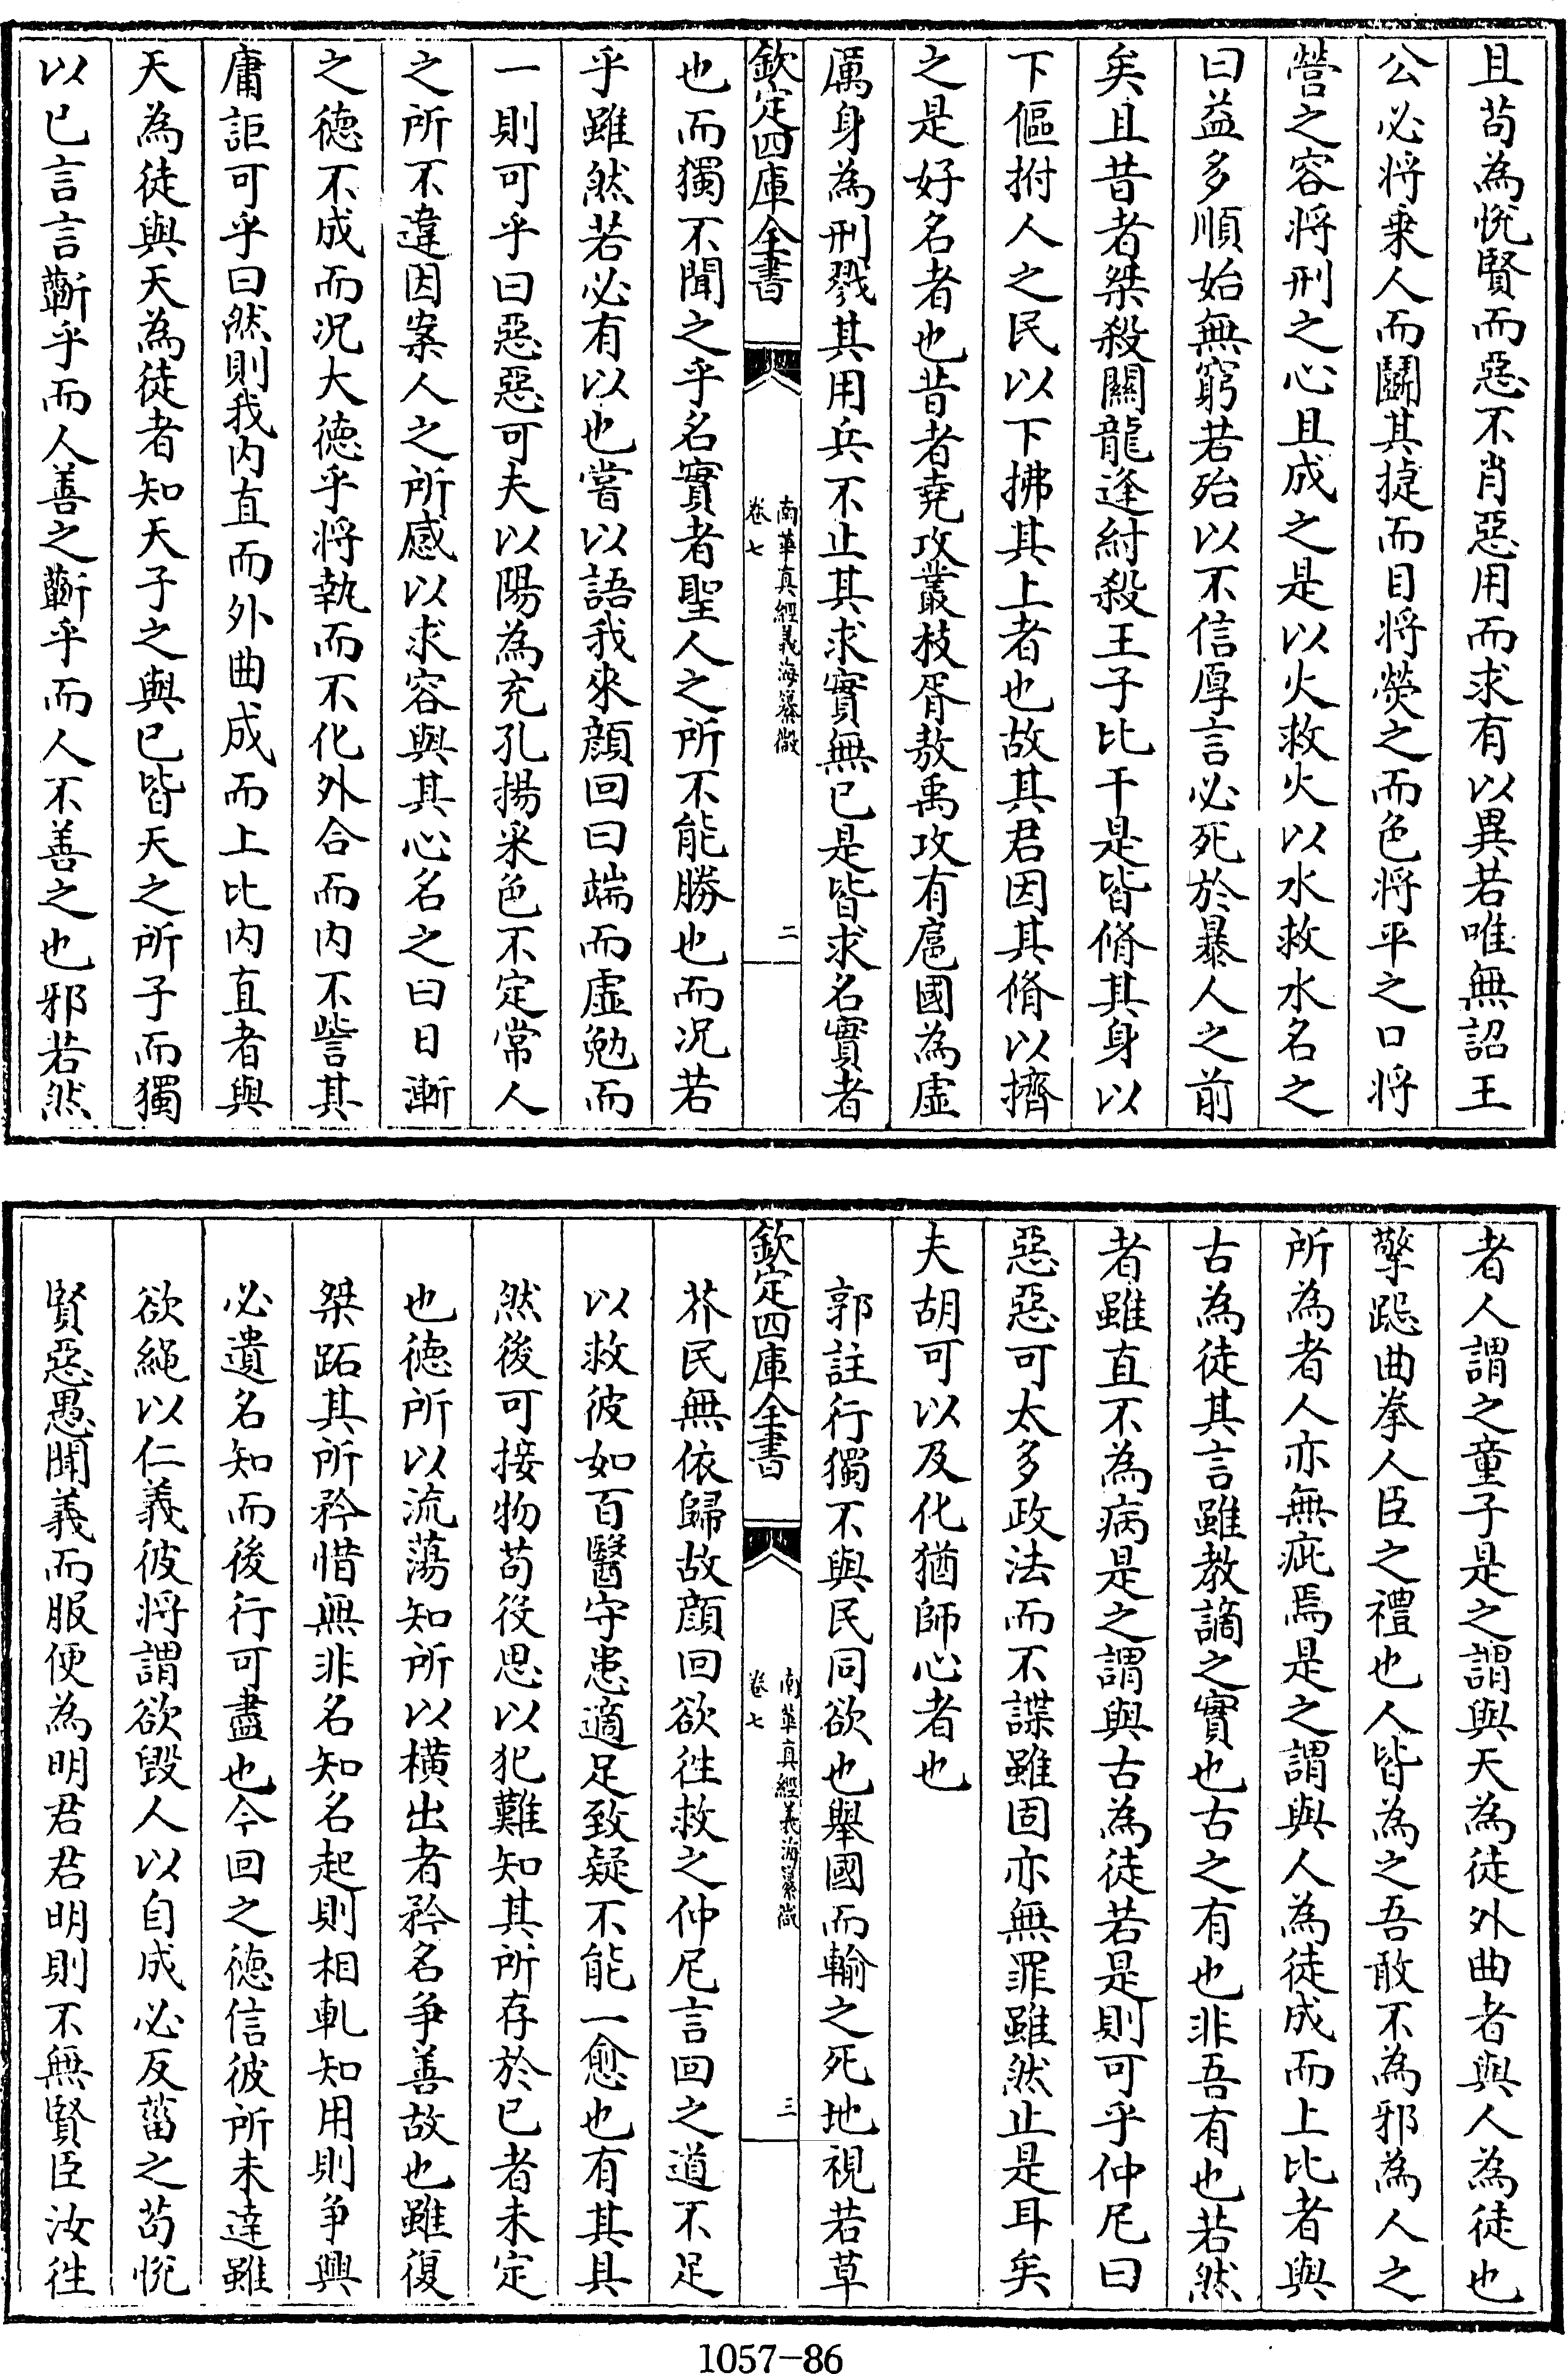 且苟為悅賢而惡不肖惡用而求有以異若唯無詔王
公必將乗人而鬭其捷而目將熒之而色將平之口將
營之容將刑之心且成之是以火救火以水救水名之
曰益多順始無窮若殆以不信厚言必死於暴人之前
矣且昔者桀殺關龍逢紂殺王子比干是皆脩其身以
下傴拊人之民以下拂其上者也故其君因其脩以擠
之是好名者也昔者堯攻叢枝胥敖禹攻有扈國為虛
厲身為刑戮其用兵不止其求實無已是皆求名實者
欽定四庫全書
南華真經義海纂微
卷七
二
也而獨不聞之乎名實者聖人之所不能勝也而况若
乎雖然若必有以也嘗以語我來顔回曰端而虛勉而
一則可乎曰惡惡可夫以陽為充孔揚采色不定常人
之所不違因案人之所感以求容與其心名之曰日漸
之德不成而况大德乎將執而不化外合而内不訾其
庸詎可乎曰然則我内直而外曲成而上比内直者與
天為徒與天為徒者知天子之與已皆天之所子而獨
以已言言蘄乎而人善之蘄乎而人不善之也邪若然
者人謂之童子是之謂與天為徒外曲者與人為徒也
擎跽曲拳人臣之禮也人皆為之吾敢不為邪為人之
所為者人亦無疵焉是之謂與人為徒成而上比者與
古為徒其言雖教讁之實也古之有也非吾有也若然
者雖直不為病是之謂與古為徒若是則可乎仲尼曰
惡惡可太多政法而不諜雖固亦無罪雖然止是耳矣
夫胡可以及化猶師心者也
郭註行獨不與民同欲也舉國而輸之死地視若草
欽定四庫全書
南華真經義海纂微
卷七
三
芥民無依歸故顔回欲徃救之仲尼言回之道不足
以救彼如百醫守患適足致疑不能一愈也有其具
然後可接物苟役思以犯難知其所存於已者未定
也德所以流蕩知所以橫出者矜名爭善故也雖復
桀跖其所矜惜無非名知名起則相軋知用則爭興
必遺名知而後行可盡也今回之德信彼所未達雖
欲繩以仁義彼將謂欲毀人以自成必反菑之苟悅
賢惡愚聞義而服便為明君君明則不無賢臣汝徃
1057-86